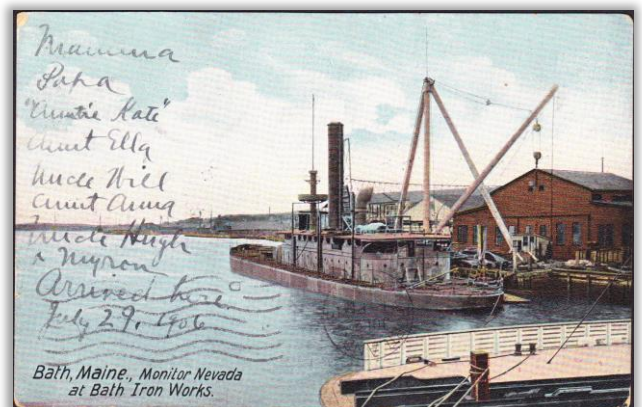 Mamma
Papa
"Auntie Kate"
Aunt Ella
Uncle Will
Aunt Anna
Uncle Hugh
& Myron
Arrived here
July 29, 1906
Bath, Maine., Monitor Nevada
at Bath Iron Works.